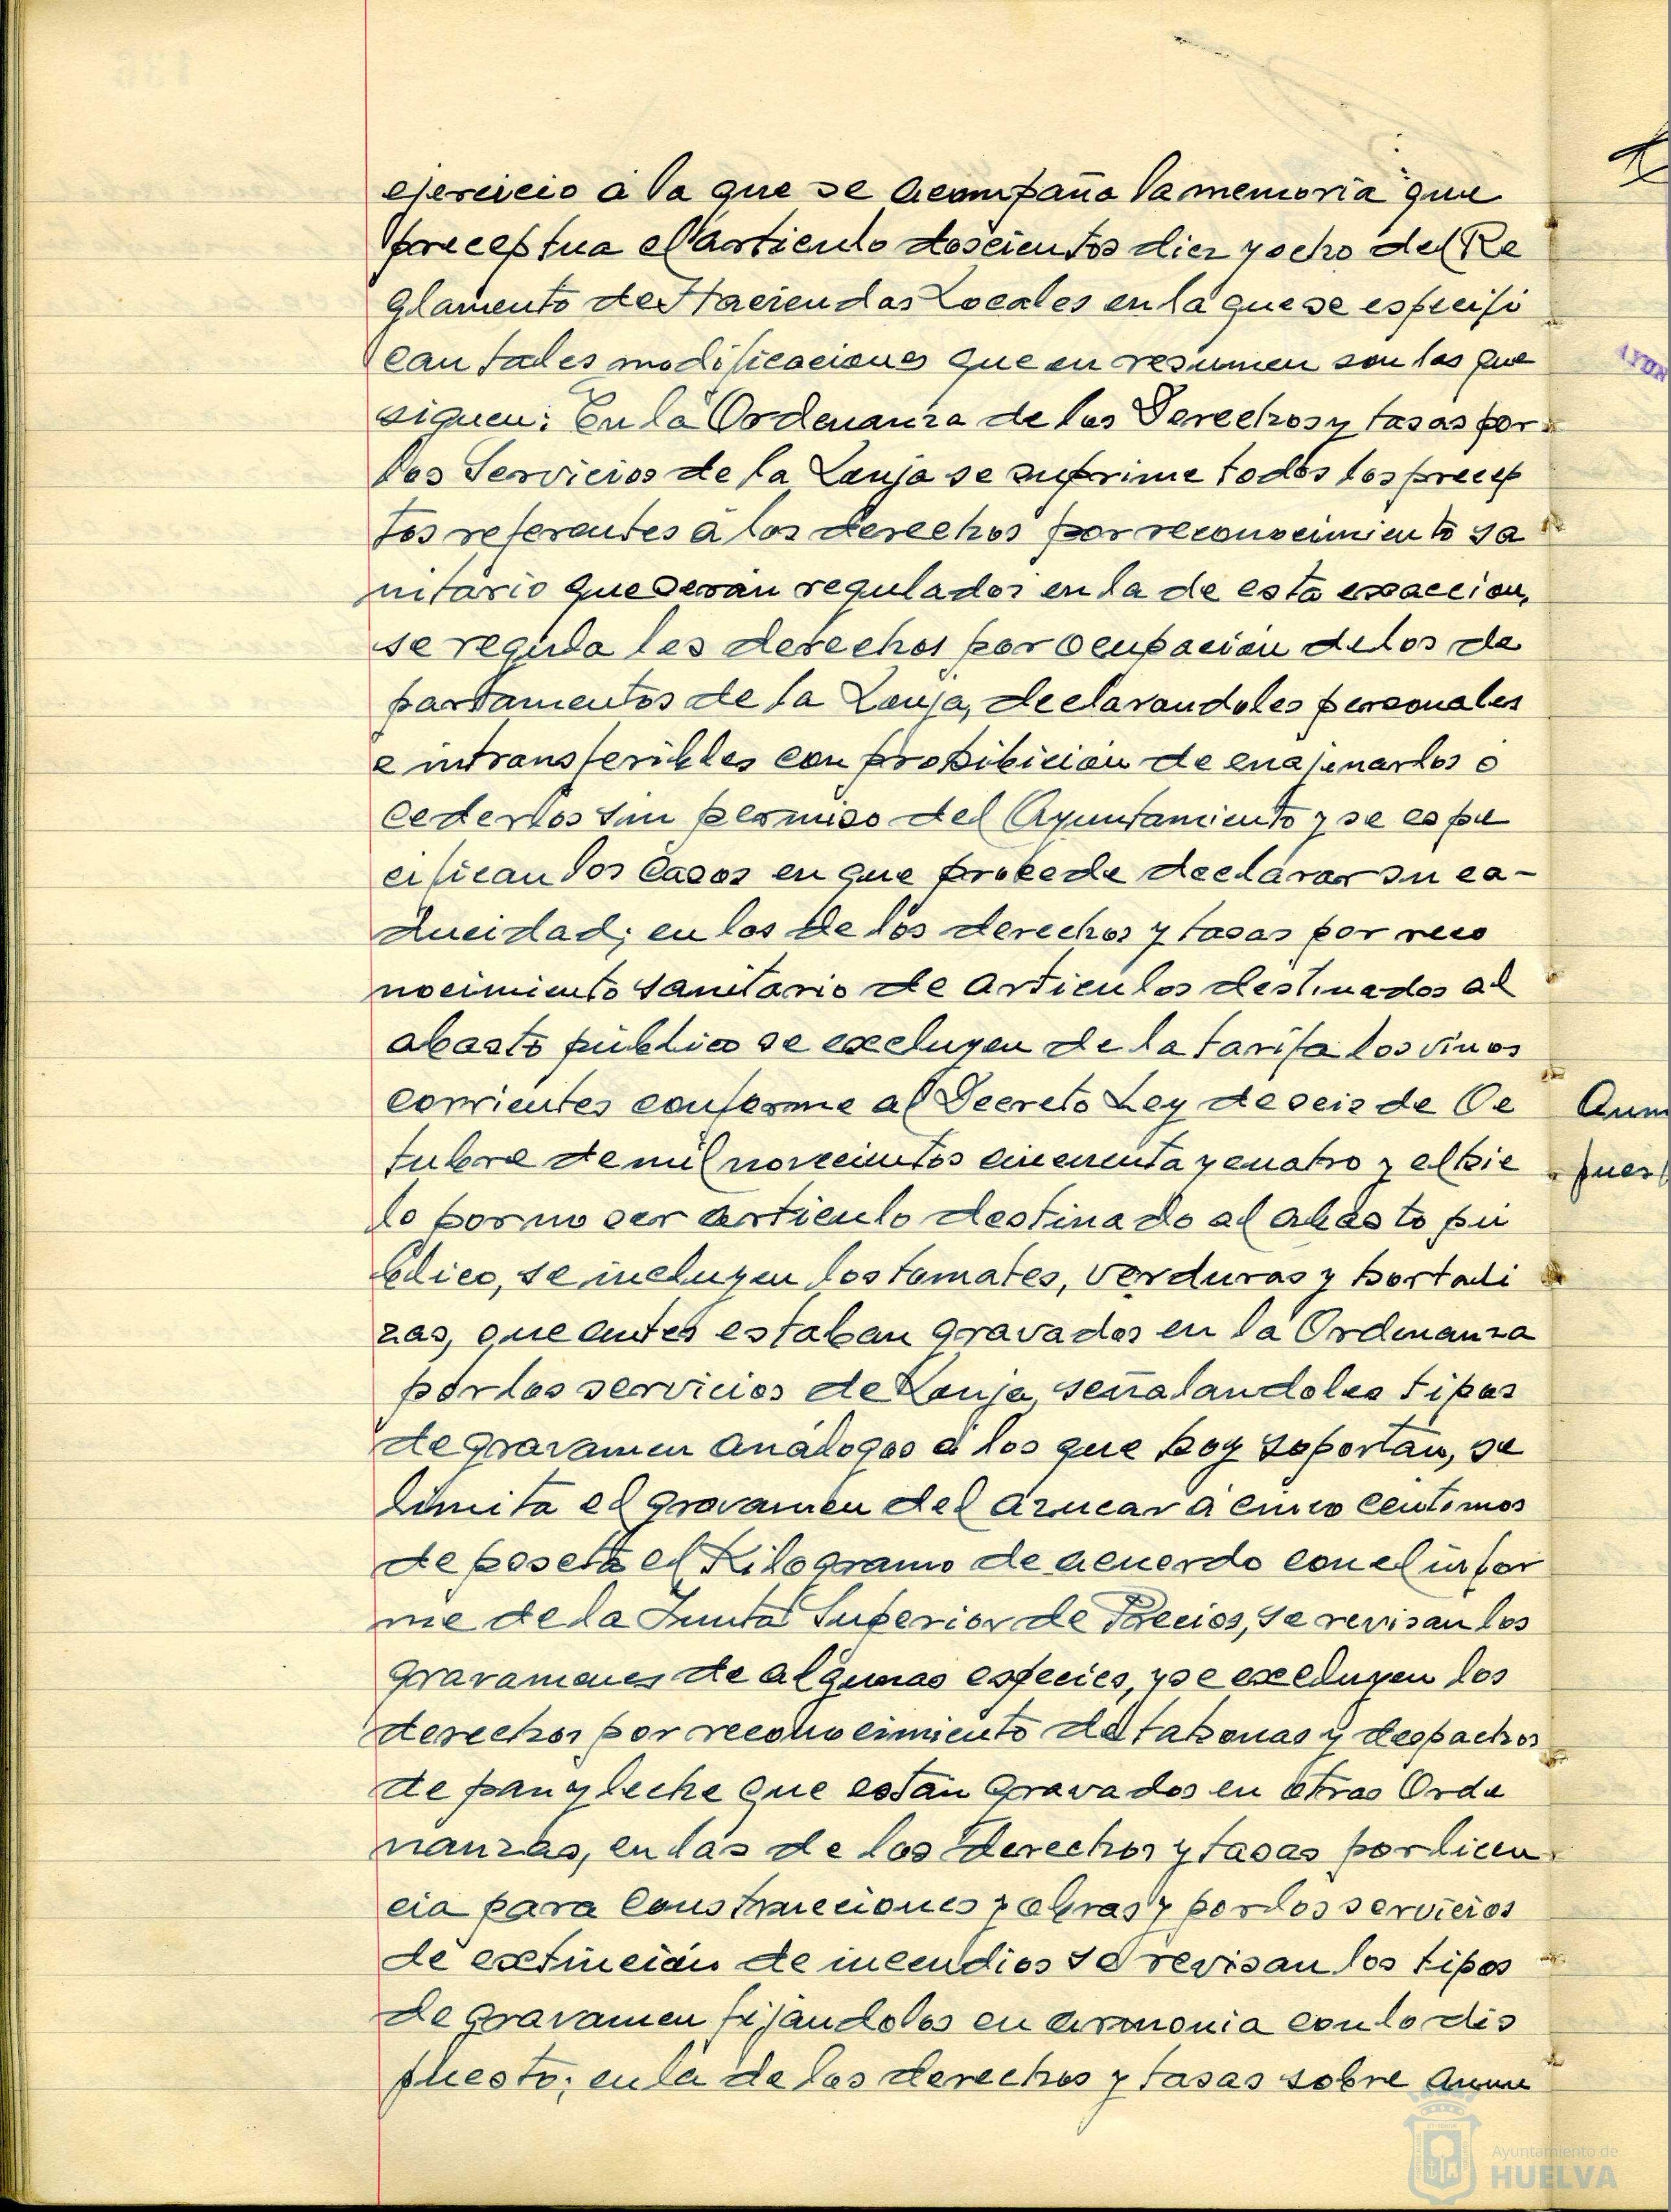 ejercicio á la que se acompaña la memoria que
preceptua el artículo doscientos diez y ocho del Re
glamento de Haciendas Locales en la que se especifi
can tales modificaciones que en resumen son las que
siguen: En la Ordenanza de los Derechos y tasas por
los Servicios de la Lonja se suprime todos los precep
tos referentes á los derechos por reconocimiento sa
nitario que serán regulados en la de esta exaccion,
se regula los derechos por ocupación de los de
partamentos de la Lonja, declarandoles personales
e intransferibles con prohibición de enajenarlos ó
cederlos sin permiso del Ayuntamiento y se espe
cifican los casos en que procede declarar su ca-
ducidad; en las de los derechos y tasas por reco
nocimiento sanitario de articulos destinados al
abasto público se excluyen de la tarifa los vinos
corrientes conforme al Decreto Ley de seis de Oc
tubre de mil novecientos cincuenta y cuatro y el hie
lo por no ser articulo destinado al abasto pú
blico, se incluyen los tomates, verduras y hortali
zas, que antes estaban gravados en la Ordenanza
por los servicios de Lonja, señalandoles tipos
de gravamen análogos á los que hoy soportan, se
limita el gravamen del azucar á cinco centimos
de peseta el Kilogramo de acuerdo con el infor
me de la Junta Superior de Precios, se revisan los
gravamenes de algunas especies, y se excluyen los
derechos por reconocimiento de tahonas y despachos
de pan y leche que están gravados en otras Orde
nanzas, en las de los derechos y tasas por licen
cia para construcciones y obras y por los servicios
de extinción de incendios se revisan los tipos
de gravamen fijándolos en armonia con lo dis
puesto; en la de los derechos y tasas sobre anun
Aum
pues
AYUN
Ayuntamiento de
HUELVA